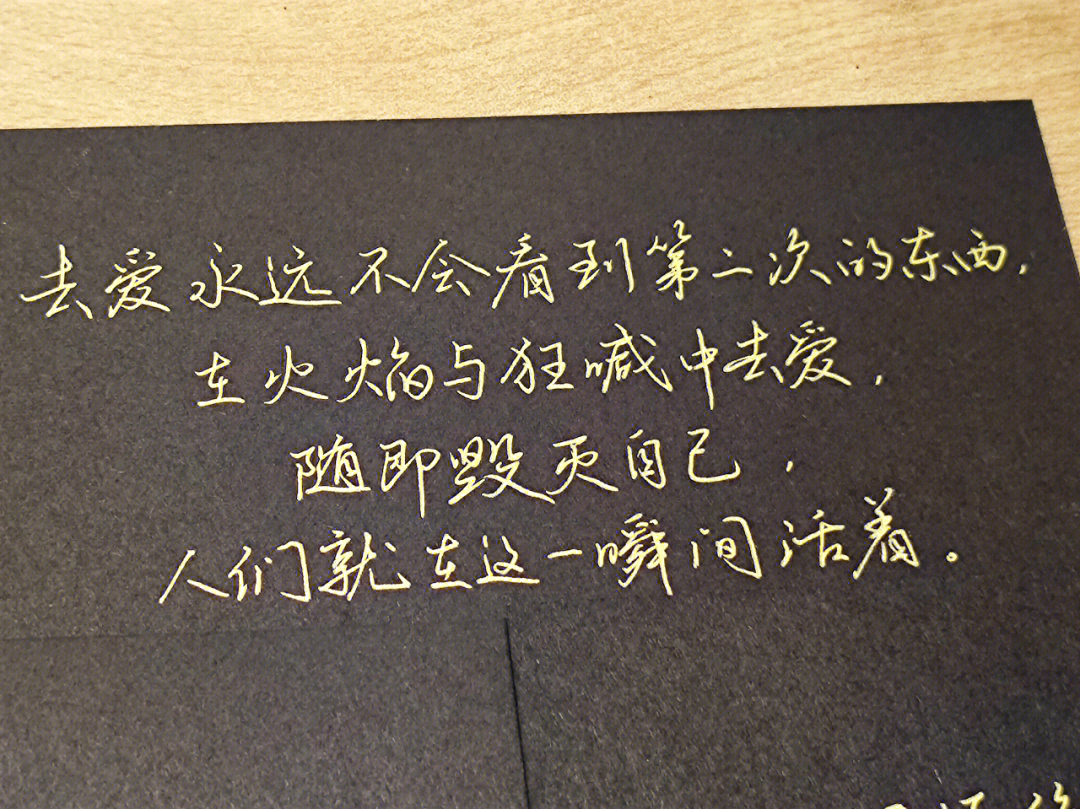 去爱永远不会看到第二次的东西，
在火焰与狂喊中去爱，
随即毁灭自己，
人们就在这一瞬间活着。